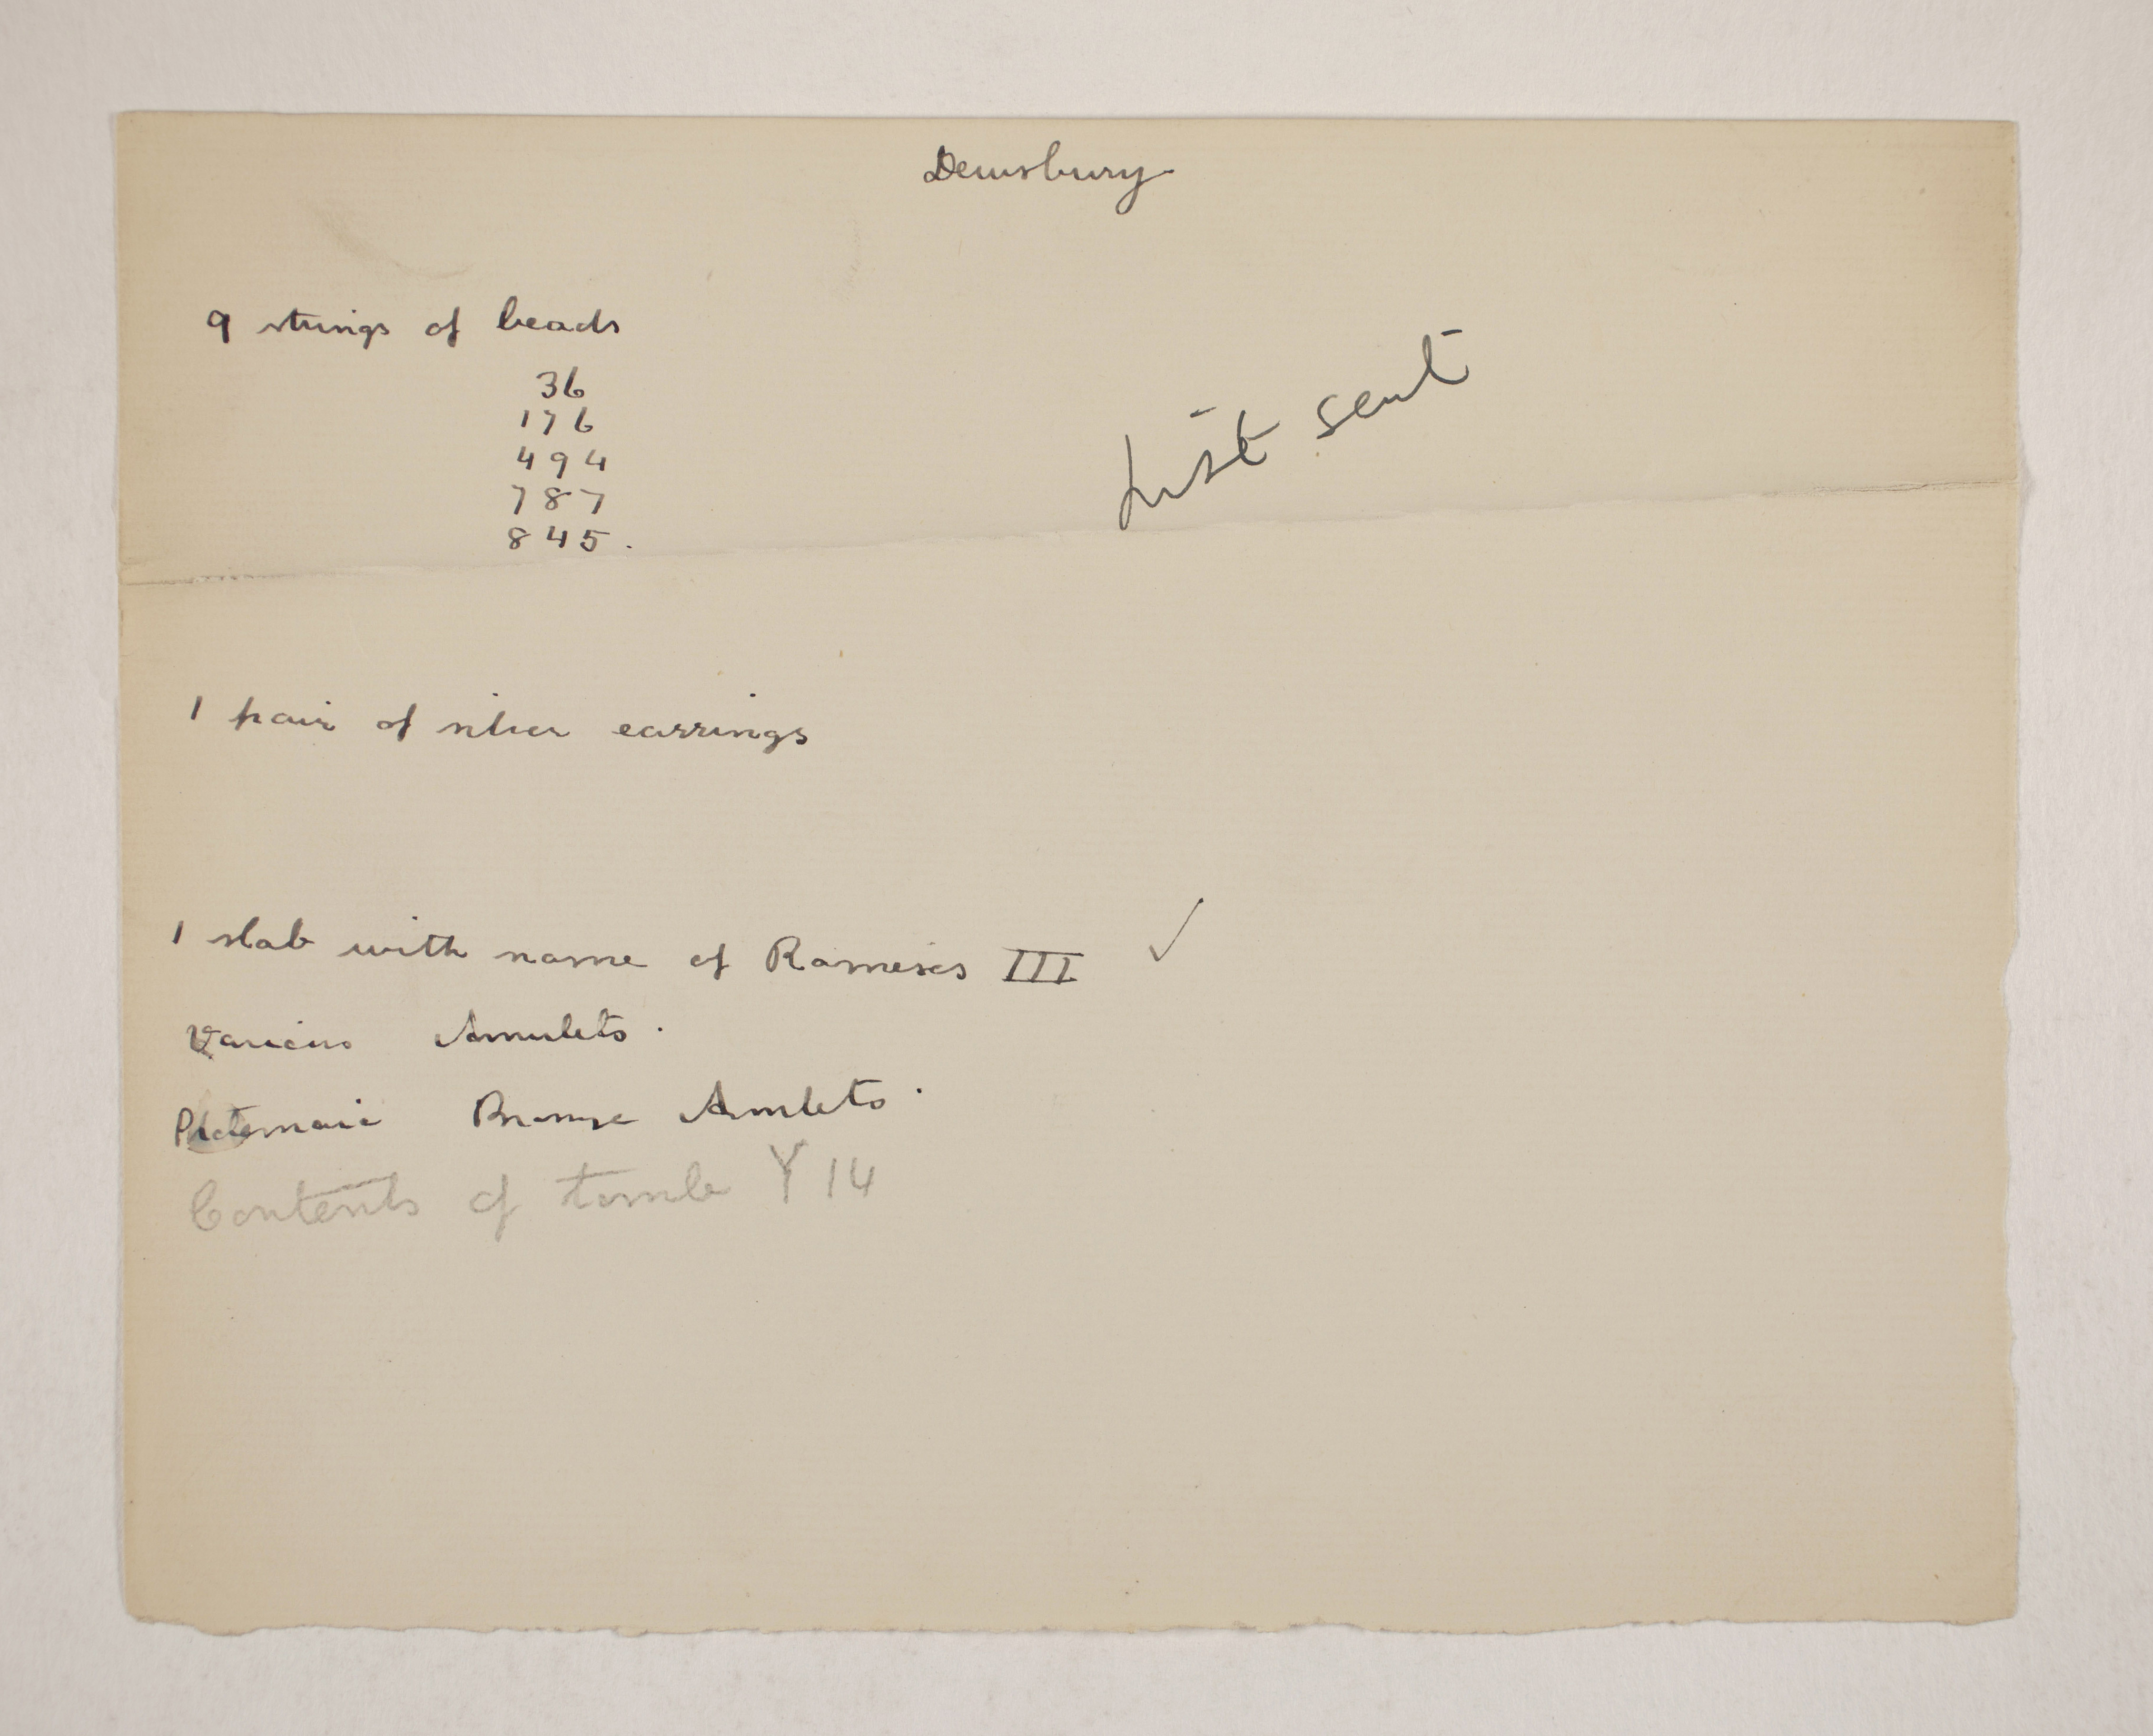 Dewsbury
9 strings of beads
36
176
494
787
845.
List sent
1 pair of silver earrings
1 slab with name of Rameses III ✓
Various Amulets.
Ptolemaic Bronze Amulets.
Contents of tomb Y 14